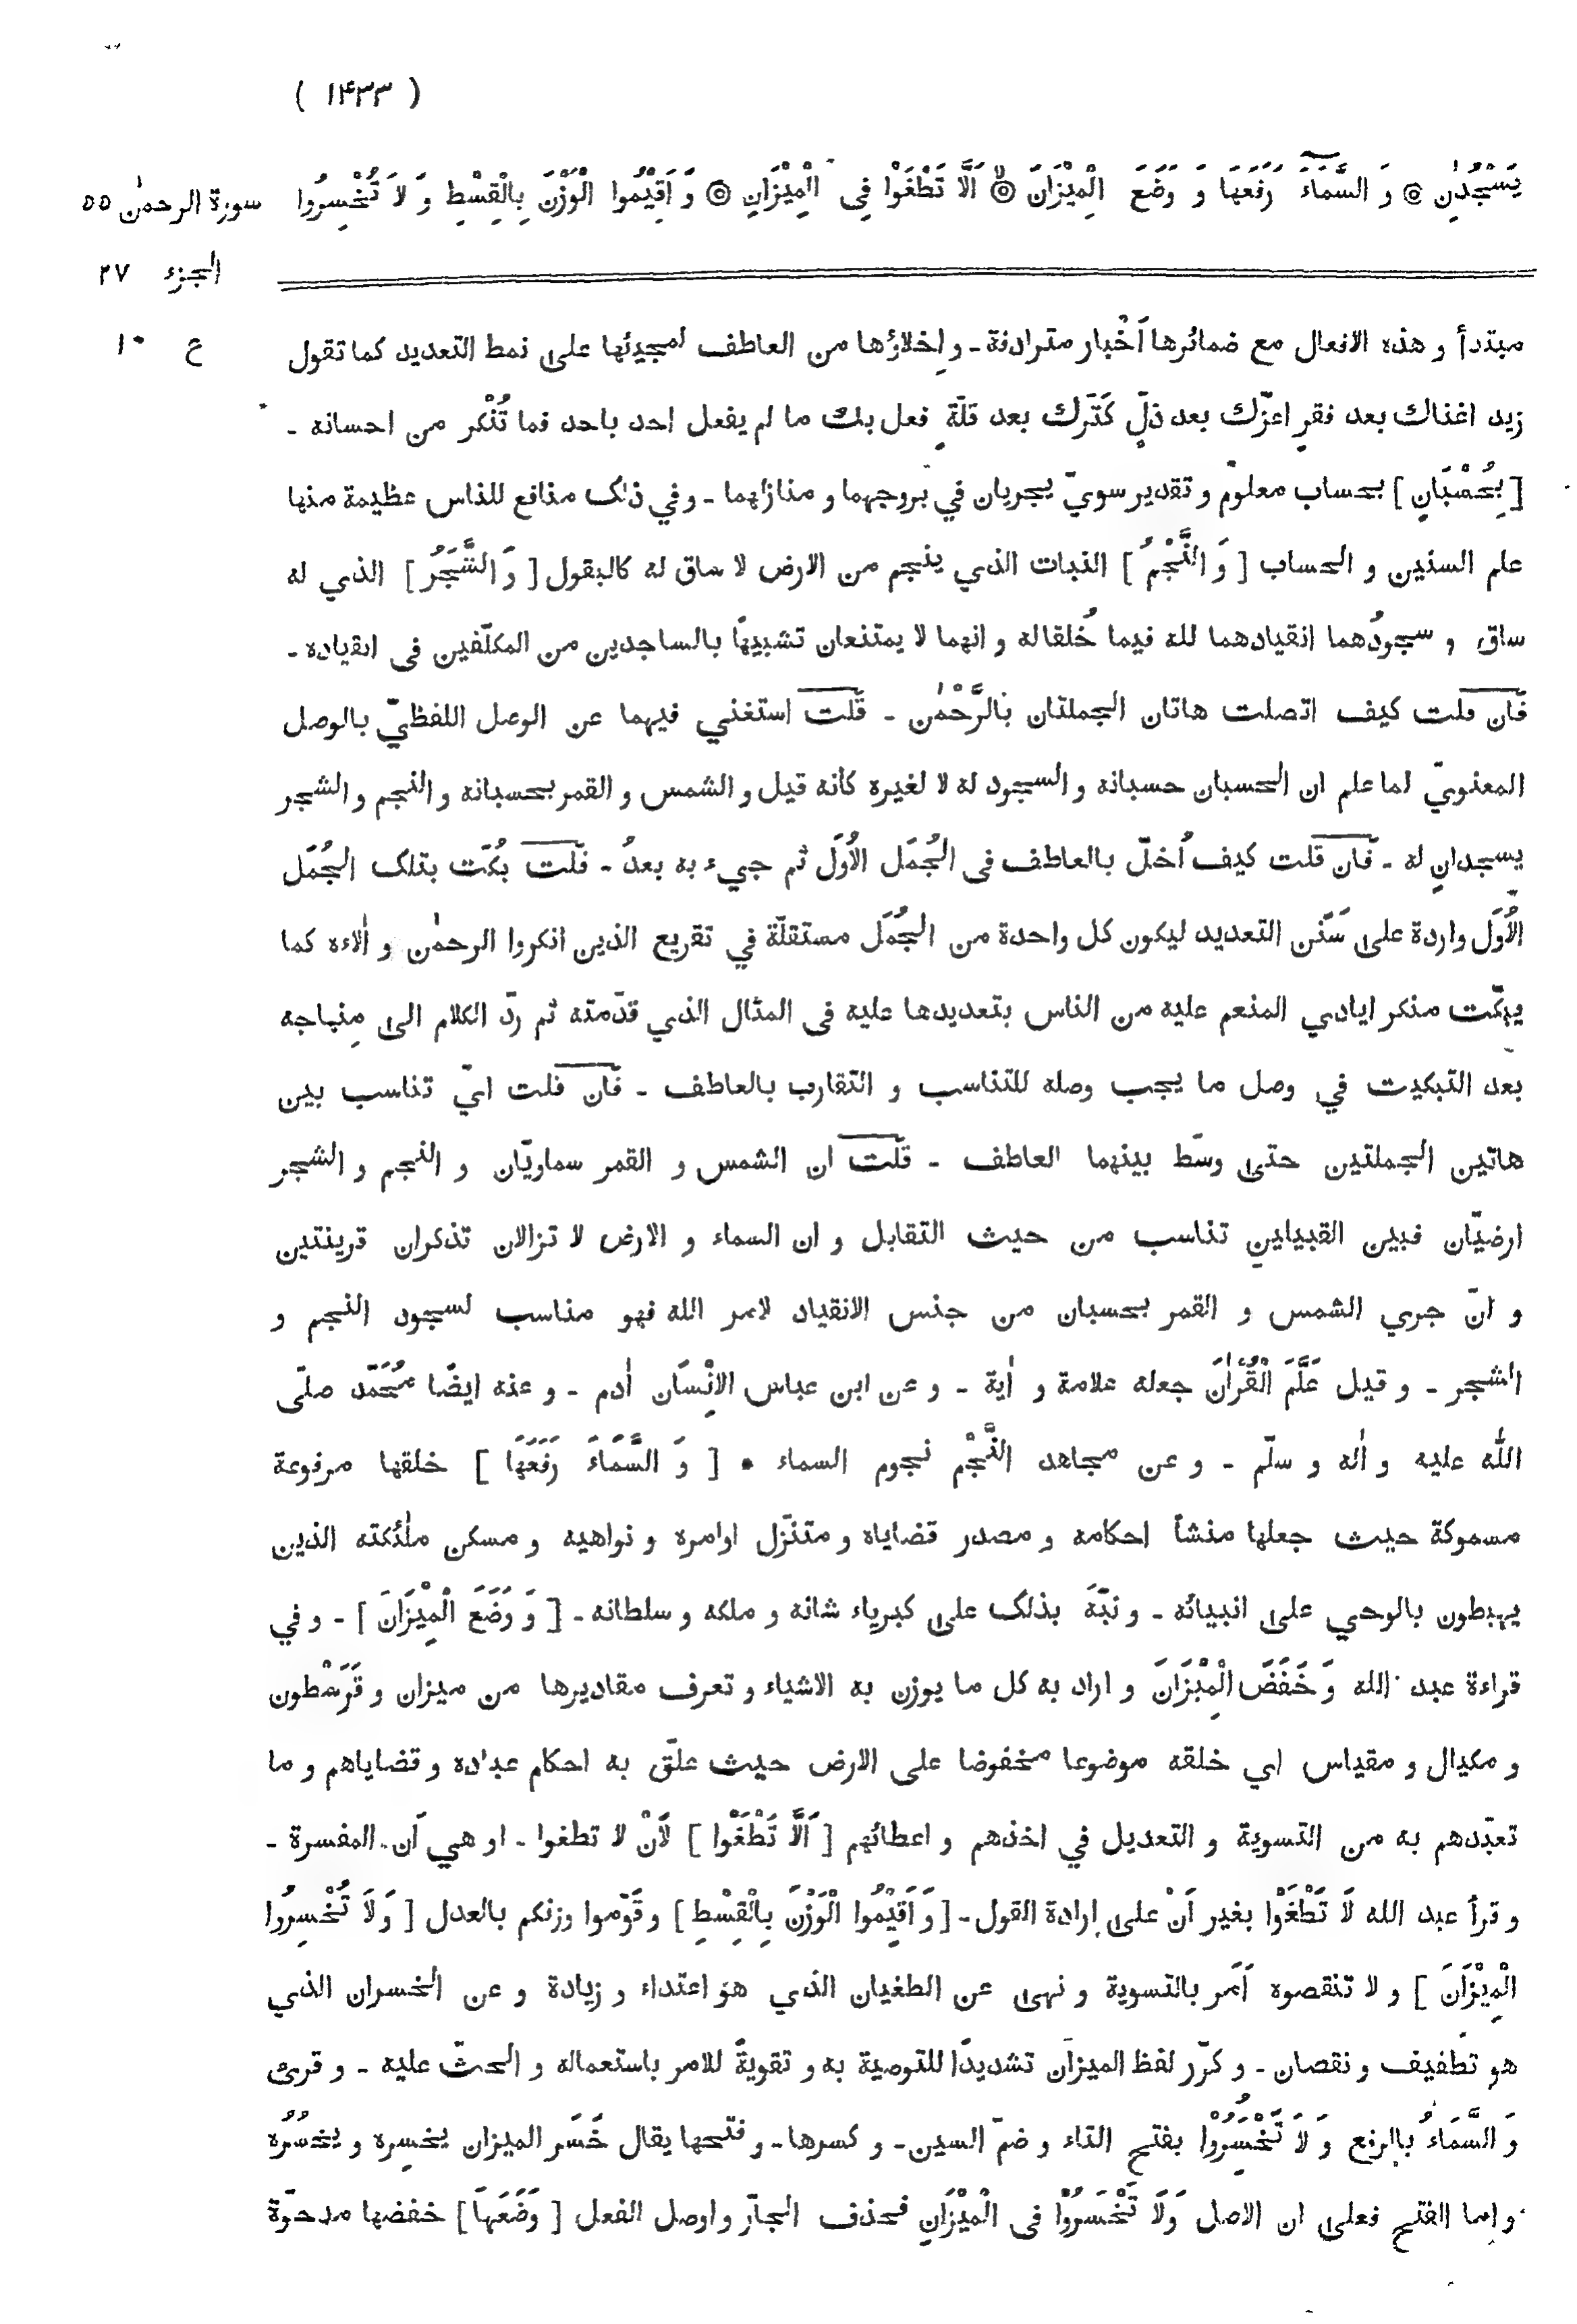 ( ١۴٣٣ )
يَسْجُدٰنِ ۞ وَ السَّمَآءَ رَفَعَهَا وَ وَضَعَ الْمِيْزَانَ ۞ اَلَّا تَطْغَوْا فِى الْمِيْزَانِ ۞ وَ اَقِيْمُوا الْوَزْنَ بِالْقِسْطِ وَ لَا تُخْسِرُوا
سورة الرحمٰن ٥٥
الجزء ٢٧
ع ١٠
مبتدأ و هذه الافعال مع ضمائرها اَخْبار مترادفة ـ و إخلاؤها من العاطف لمجيئها على نمط التعديد كما تقول
زيد اغناك بعد فقرٍ اعزّك بعد ذلٍّ كَثّرك بعد قلّةٍ فعل بك ما لم يفعل احد باحد فما تُنْكر من احسانه ـ
[ بِحُسْبَانٍ ] بحساب معلوم و تقدير سويّ يجريان في بروجهما و منازلهما ـ و في ذلك منافع للناس عظيمة منها
علم السنين و الحساب [ وَ النَّجْمُ ] النبات الذي ينجم من الارض لا ساق له كالبقول [ وَ الشَّجَرُ ] الذي له
ساق و سجودُهما انقيادهما لله فيما خُلقا له و انهما لا يمتنعان تشبيهًا بالساجدين من المكلّفين فى انقياده ـ
فَان قلت كيف اتصلت هاتان الجملتان بالرَّحْمٰن ـ قلَت استغني فيهما عن الوصل اللفظيّ بالوصل
المعنويّ لما علم ان الحسبان حسبانه و السجود له لا لغيره كأنه قيل و الشمس و القمر بحسبانه و النجم و الشجر
يسجدانِ له ـ فَان قلت كيف اُخلّ بالعاطف فى الجُمَل الاُوَل ثم جيء به بعدُ ـ قلَت بُكّت بتلك الجُمَل
الاُوَل واردة على سَنَن التعديد ليكون كل واحدة من الجُمَل مستقلّة في تقريع الذين انكروا الرحمٰن و اٰلاءه كما
يبكّت منكر ايادي المنعم عليه من الناس بتعديدها عليه فى المثال الذي قدّمته ثم ردّ الكلام الى مِنهاجه
بعد التبكيت في وصل ما يجب وصله للتناسب و التقارب بالعاطف ـ فَان قلت ايّ تناسب بين
هاتين الجملتين حتى وسّط بينهما العاطف ـ قلَت ان الشمس و القمر سماويّان و النجم و الشجر
ارضيّان فبين القبيلين تناسب من حيث التقابل و ان السماء و الارض لا تزالان تذكران قرينتين
و انّ جري الشمس و القمر بحسبان من جنس الانقياد لامر الله فهو مناسب لسجود النجم و
الشجر ـ و قيل عَلَّمَ الْقُرْاٰنَ جعله علامة و اٰية ـ و عن ابن عباس الاِنْسَان اٰدم ـ و عنه ايضًا محُمَّد صلّى
اللّٰه عليه و اٰله و سلّم ـ و عن مجاهد النَّجْم نجوم السماء • [ وَ السَّمَآءَ رَفَعَهَا ] خلقها مرفوعة
مسموكة حيث جعلها منشأ احكامه و مصدر قضاياه و متنزّل اوامره و نواهيه و مسكن ملٰئكته الذين
يهبطون بالوحي على انبيائه ـ و نبّهَ بذلك على كبرياء شانه و ملكه و سلطانه ـ [ وَ وَضَعَ الْمِيْزَانَ ] ـ و في
قراءة عبد الله وَ خَفَضَ الْمِيْزَانَ و اراد به كل ما يوزن به الاشياء و تعرف مقاديرها من ميزان و قَرَسْطون
و مكيال و مقياس اي خلقه موضوعا مخفوضا على الارض حيث علّق به احكام عباده و قضاياهم و ما
تعبّدهم به من التسوية و التعديل في اخذهم و اعطائهم [ اَلَّا تَطْغَوْا ] لَانْ لا تطغوا ـ او هي اَن المفسرة ـ
و قرأ عبد الله لَا تَطْغَوْا بغير اَنْ على إرادة القول ـ [ وَ اَقِيْمُوا الْوَزْنَ بِالْقِسْطِ ] و قَوّموا وزنكم بالعدل [ وَ لَا تُخْسِرُوا
الْمِيْزَانَ ] و لا تنقصوه اَمَر بالتسوية و نهى عن الطغيان الذي هو اعتداء و زيادة و عن الخسران الذي
هو تطفيف و نقصان ـ و كرّر لفظ الميزان تشديدًا للتوصية به و تقويةً للامر باستعماله و الحثّ عليه ـ و قرئ
وَ السَّمَاءُ بالرفع وَ لَا تَخْسُرُوْا بفتح التاء و ضمّ السين ـ و كسرها ـ و فتحها يقال خَسَر الميزان يخسِره و يخسُره
و إما الفتح فعلى ان الاصل وَلَا تَخْسَرُوْا فى الْمِيْزَانِ فحذف الجارّ و اوصل الفعل [ وَضَعَهَا ] خفضها مدحوّة